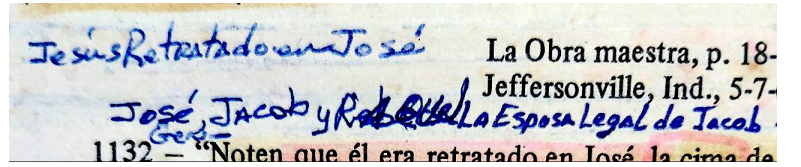 Jesús Retratado en José
La Obra maestra, p. 18-
Jeffersonville, Ind., 5-7-
José, Jacob y Raquel La Esposa Legal de Jacob
Gen-
1132 – “Noten que él era retratado en José, la cima de